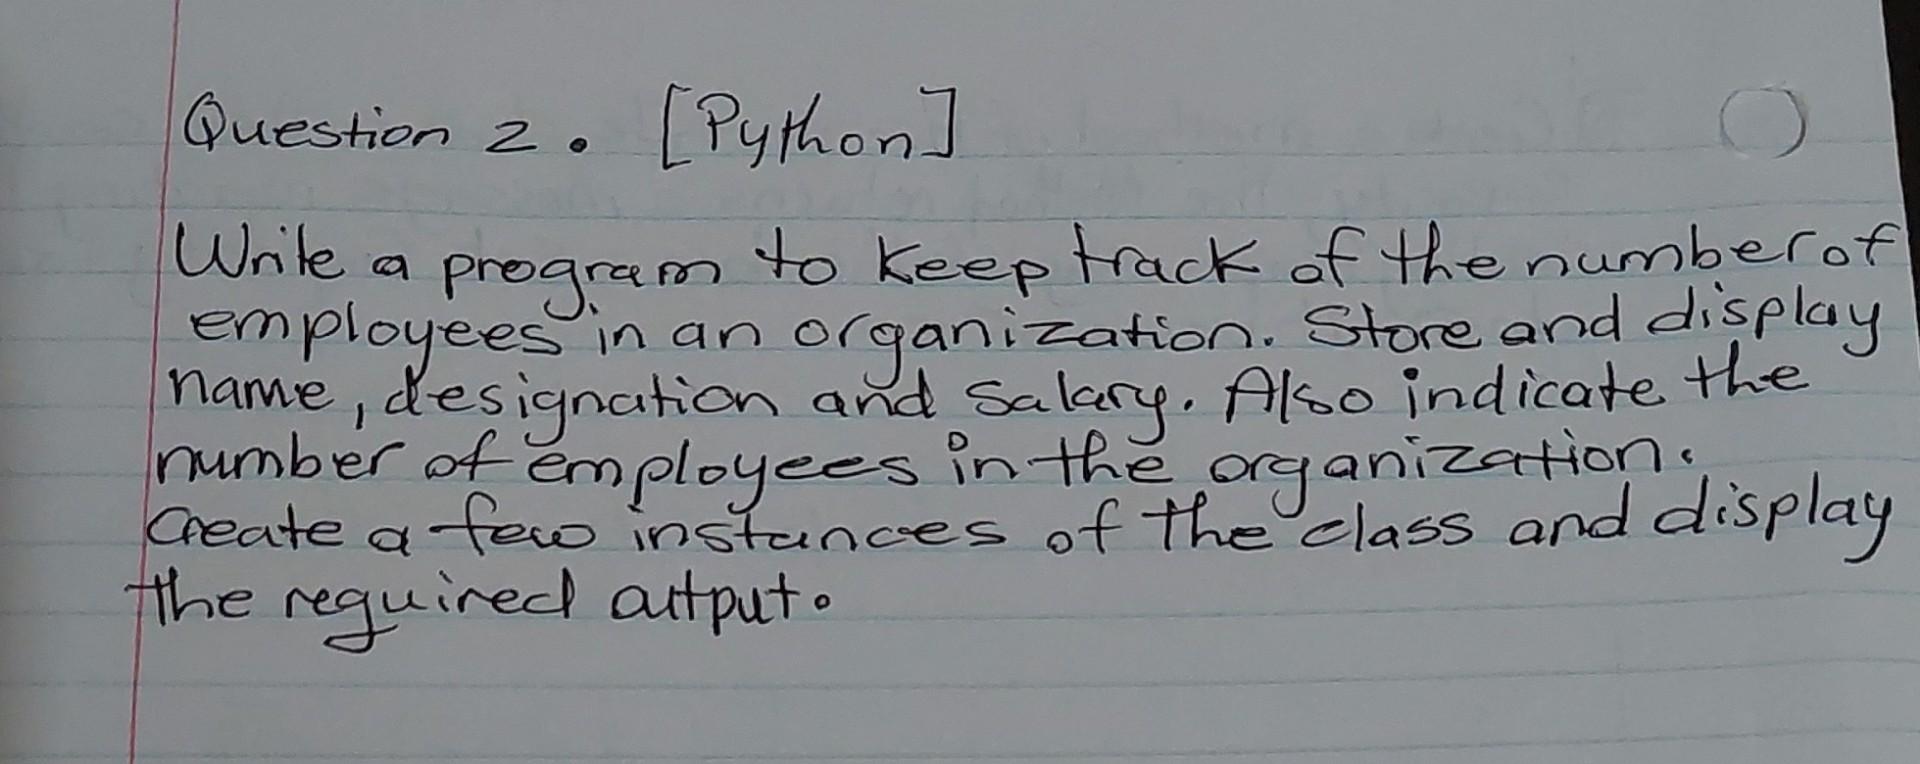 Question 2. [Python]
Write a program to keep track of the number of
employees in an organization. Store and display
name, designation and salary. Also indicate the
number of employees in the organization.
Create a few instances of the class and display
the required output.